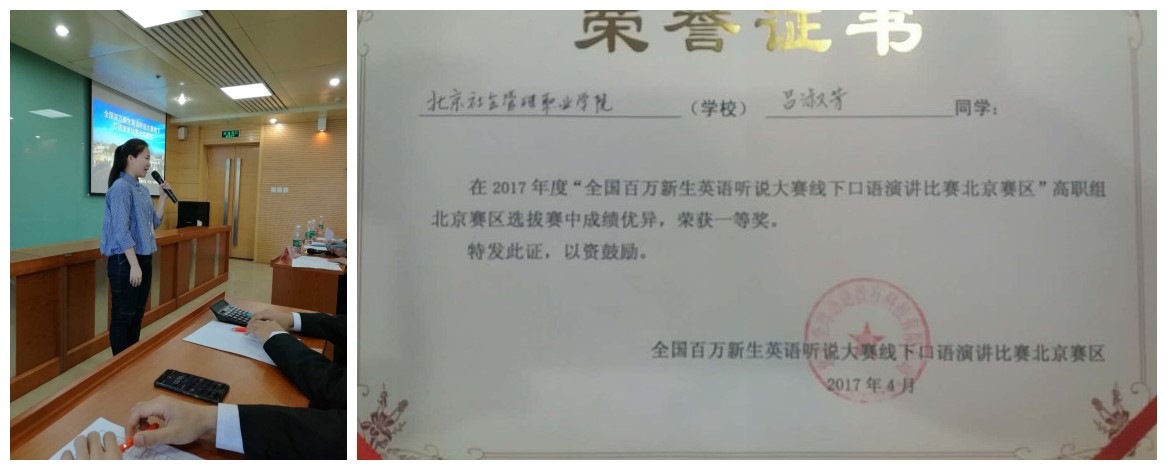 全国百万新生英语听说大赛线下
口语演讲比赛北京赛区
荣誉证书
北京社会管理职业学院（学校）吕淑芳同学：
在2017年度“全国百万新生英语听说大赛线下口语演讲比赛北京赛区”高职组
北京赛区选拔赛中成绩优异，荣获一等奖。
特发此证，以资鼓励。
全国百万新生英语听说大赛线下口语演讲比赛北京赛区
2017年4月